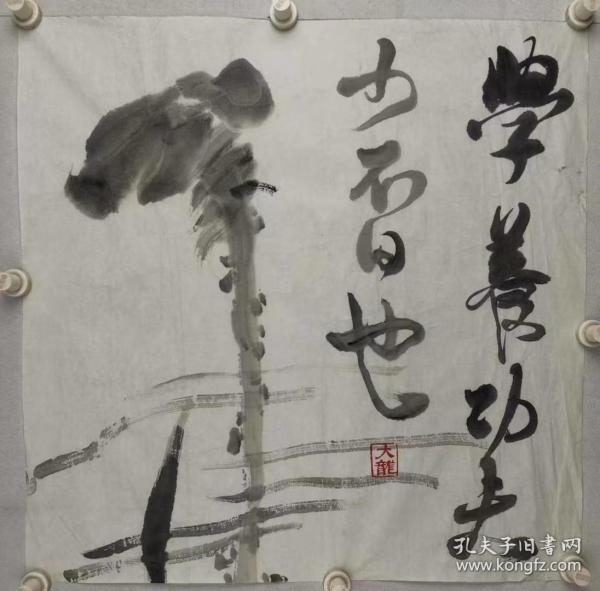 學養功夫
少不日也
大龍
孔夫子旧書网
www.kongfz.com